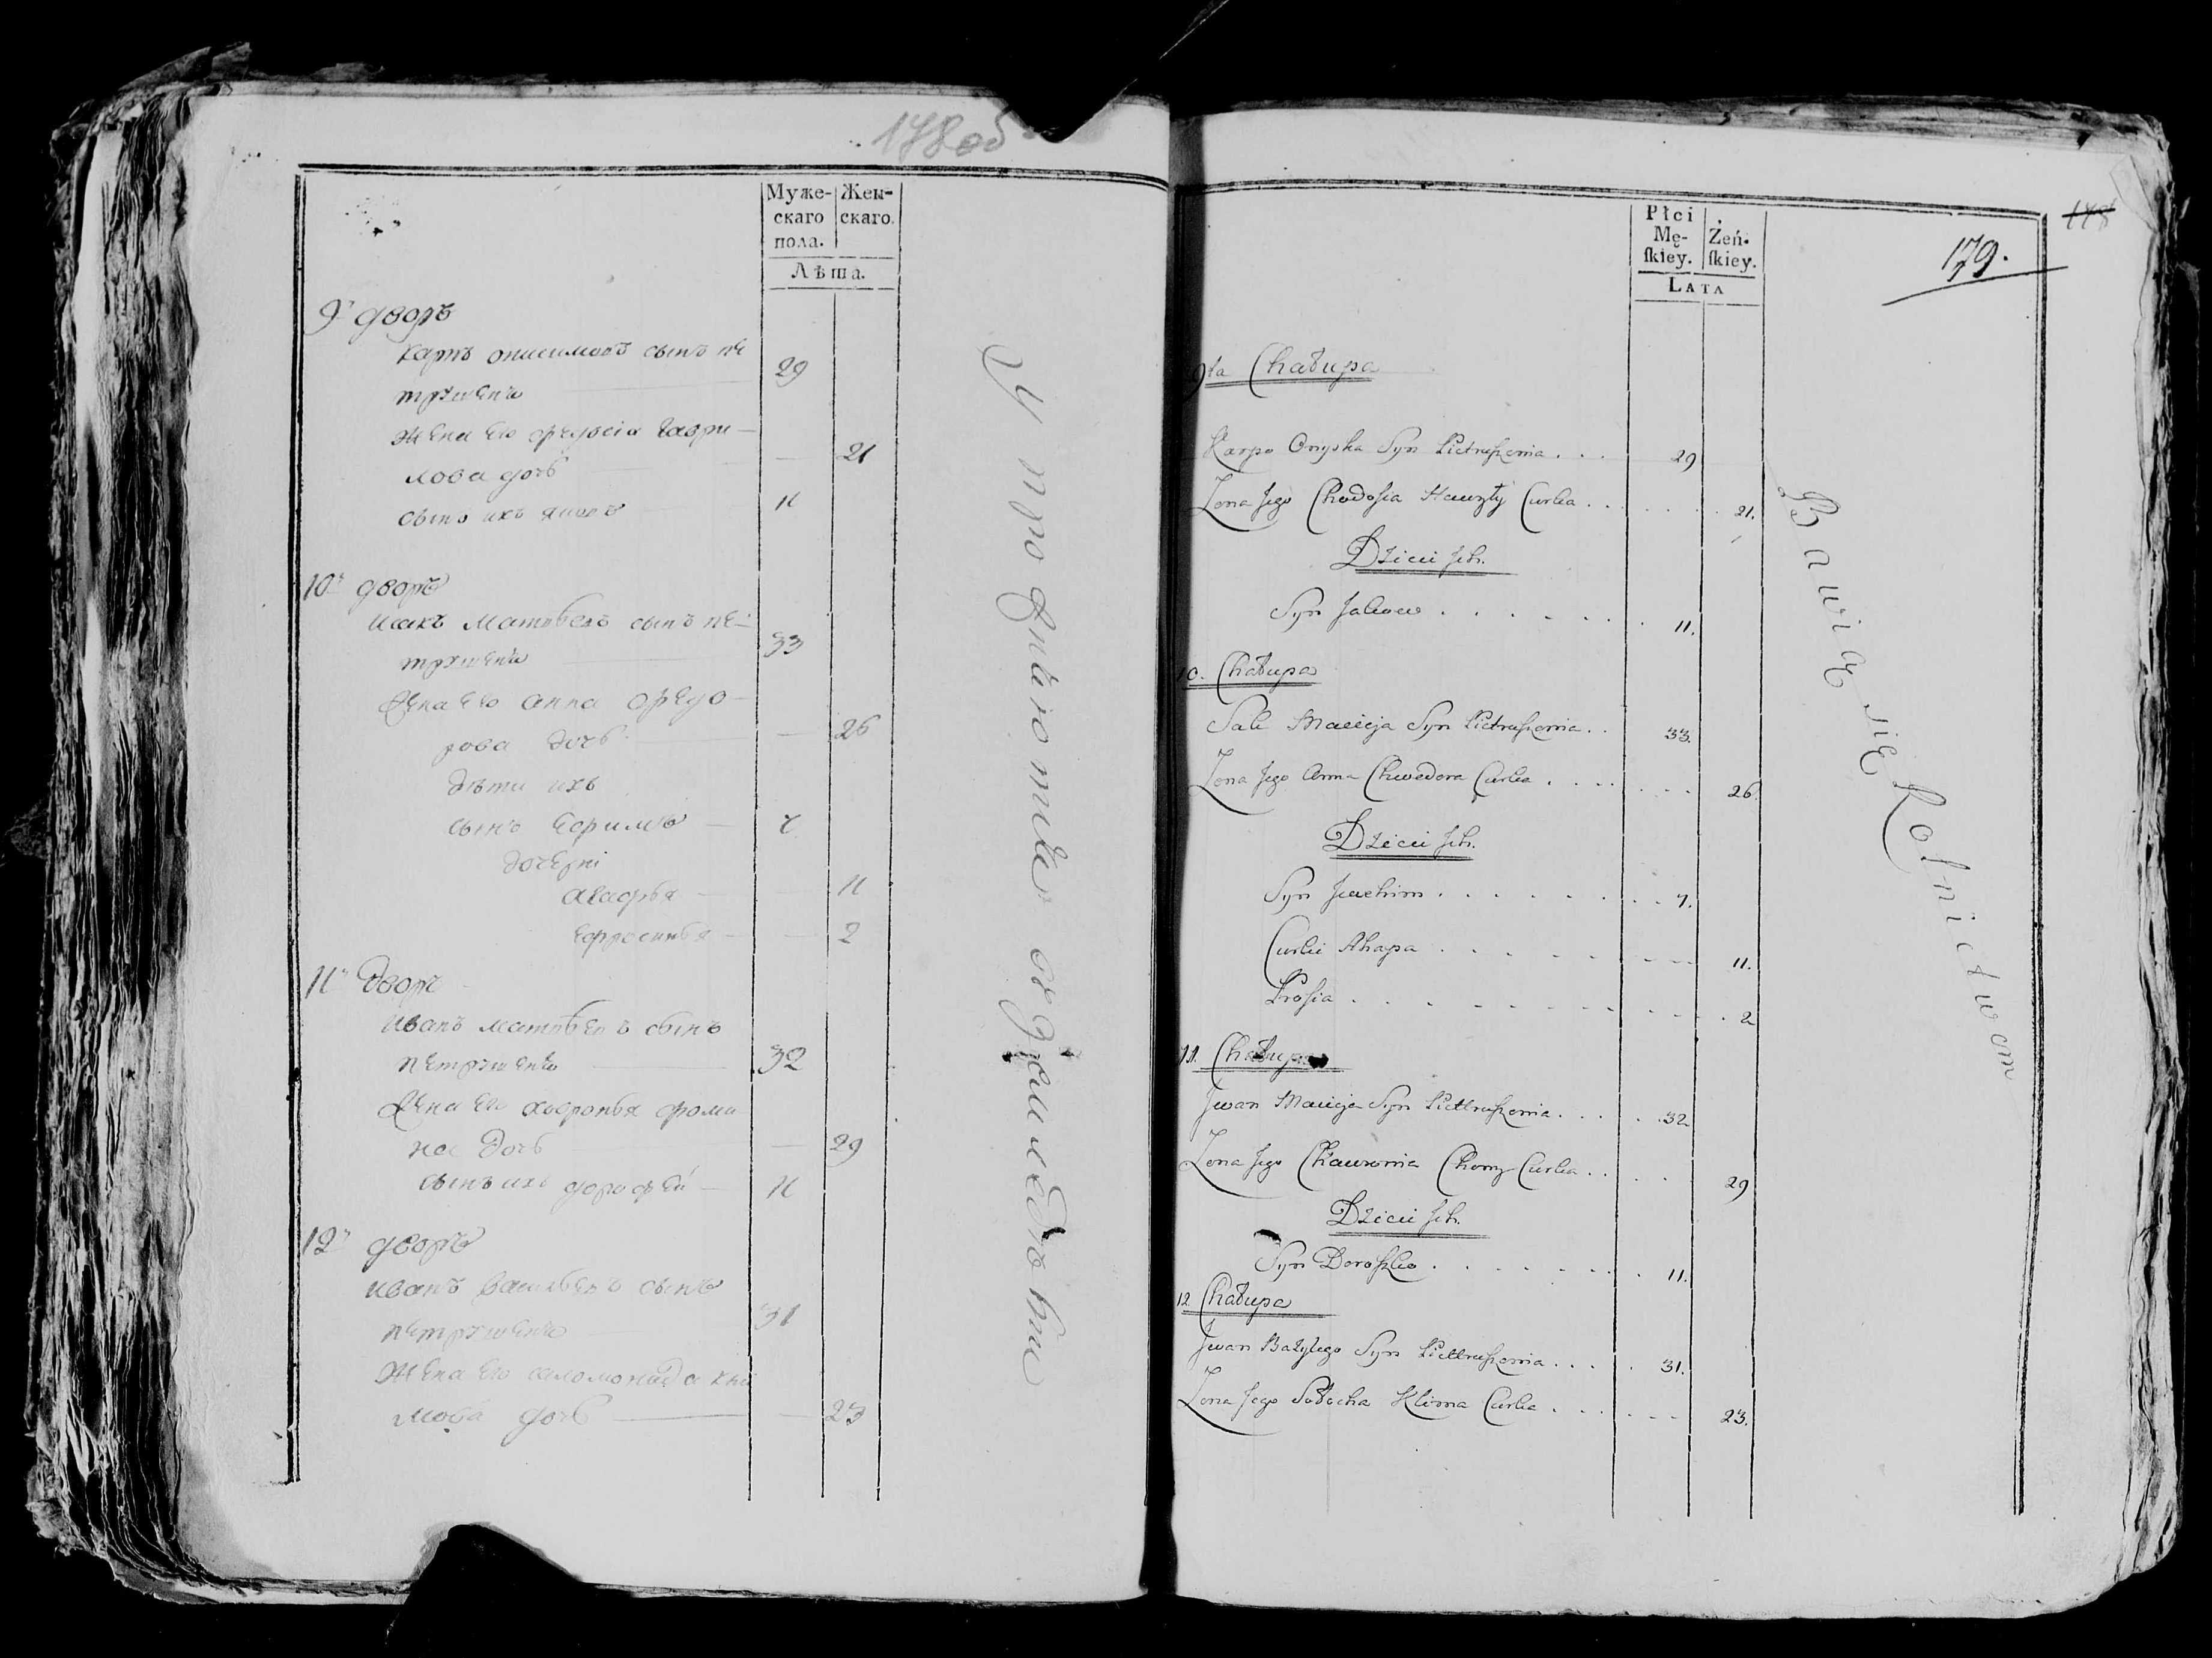 178 об
Муже-
скаго
пола.
Жен-
скаго.
Лѣта.
9й дворъ
Карпъ онисимовъ сынъ пе
трꙋшеня 29
Жена его федосіа гаври
лова дочь 21
сынъ ихъ яковъ 11
10й дворъ
Исакъ Матвѣевъ сынъ пе-
трꙋшеня 33
Жена его анна федо
рова дочь 26
дѣти ихъ
сынъ Ефимъ 7
дочери
Агафья 11
Ефросинья 2
11й дворъ
Иванъ матвѣевъ сынъ
петрꙋшеня 32
Жена его хавронья фоми
на дочь 29
сынъ ихъ дорофей 11
12й дворъ
Иванъ васильевъ сынъ
петрꙋшеня 31
Жена его соломонида кли
мова дочь 23
упрожнѣютца
земледѣлѣем
178
179.
Płci
Mę-
ſkiey.
Żeń-
ſkiey.
LATA
9ta Chałupa
Karpo Onyska Syn Pietruszenia . . . 29
Zona Jego Chwdosia Hawryły Curka . . . 21.
Dzieci Ich.
Syn Jakow . . . 11.
10. Chałupa
Sak Macieja Syn Pietruszenia . . 33.
Zona Jego Anna Chwedora Curka . . . 26.
Dzieci Ich.
Syn Juchim . . . 7.
Curki Ahapa . . . 11.
Prosia . . . 2
11. Chałupa
Jwan Macieja Syn Pietruszenia . . . 32
Zona Jego Chawronia Chomy Curka . . 29
Dzieci Ich.
Syn Doroszko . . . 11.
12 Chałupa
Jwan Bazylego Syn Pietruszenia . . . 31.
Zona Jego Sołocha Klima Curka . . . 23.
Bawią się Rolnictwem